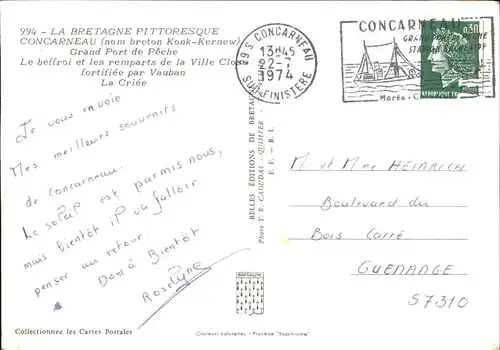 994 - LA BRETAGNE PITTORESQUE
CONCARNEAU (nom breton Konk-Kernew)
Grand Port de Pêche
Le beffroi et les remparts de la Ville Close
fortifiée par Vauban
La Criée
29 S CONCARNEAU
13H45
22-7
1974
SUD-FINISTERE
CONCARNEAU
GRAND PORT DE PÊCHE
STATION BALNEAIRE
Marée-
0,30
Je vous envoie
mes meilleurs souvenirs
de concarneau.
Le soleil est parmis nous,
mais bientôt il va falloir
penser au retour.
Donc à Bientôt
Roselyne
BELLES ÉDITIONS DE BRETAGNE
Photo Y. R. CAOUDAL - QUIMPER -
F. F. - R. I.
M et Mme HEINRICH
Boulevard du
Bois Carré
GUENANGE
57310
BRETAGNE
Collectionnez les Cartes Postales
Couleurs naturelles - Procédé "Yvachrome"